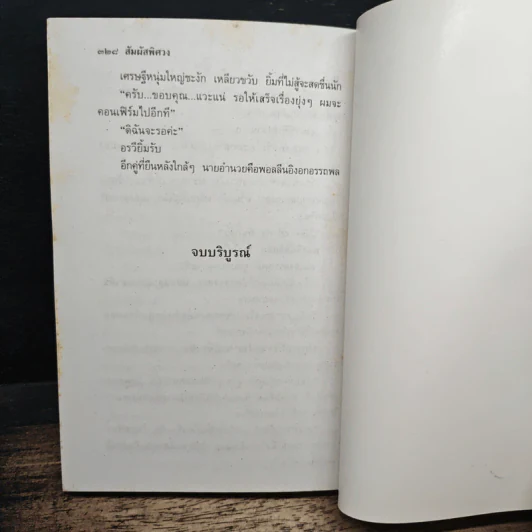 ๓๒๘ สัมผัสพิศวง
เศรษฐีหนุ่มใหญ่ชะงัก เหลียวขวับ ยิ้มที่ไม่สู้จะสดชื่นนัก
“ครับ...ขอบคุณ...แวะแน่ รอให้เสร็จเรื่องยุ่งๆ ผมจะ
คอนเฟิร์มไปอีกที”
“ดิฉันจะรอค่ะ”
อรวียิ้มรับ
อีกคู่ที่ยืนหลังใกล้ๆ นายอำนวยคือพอลลีนอิงอกอรรถพล
จบบริบูรณ์